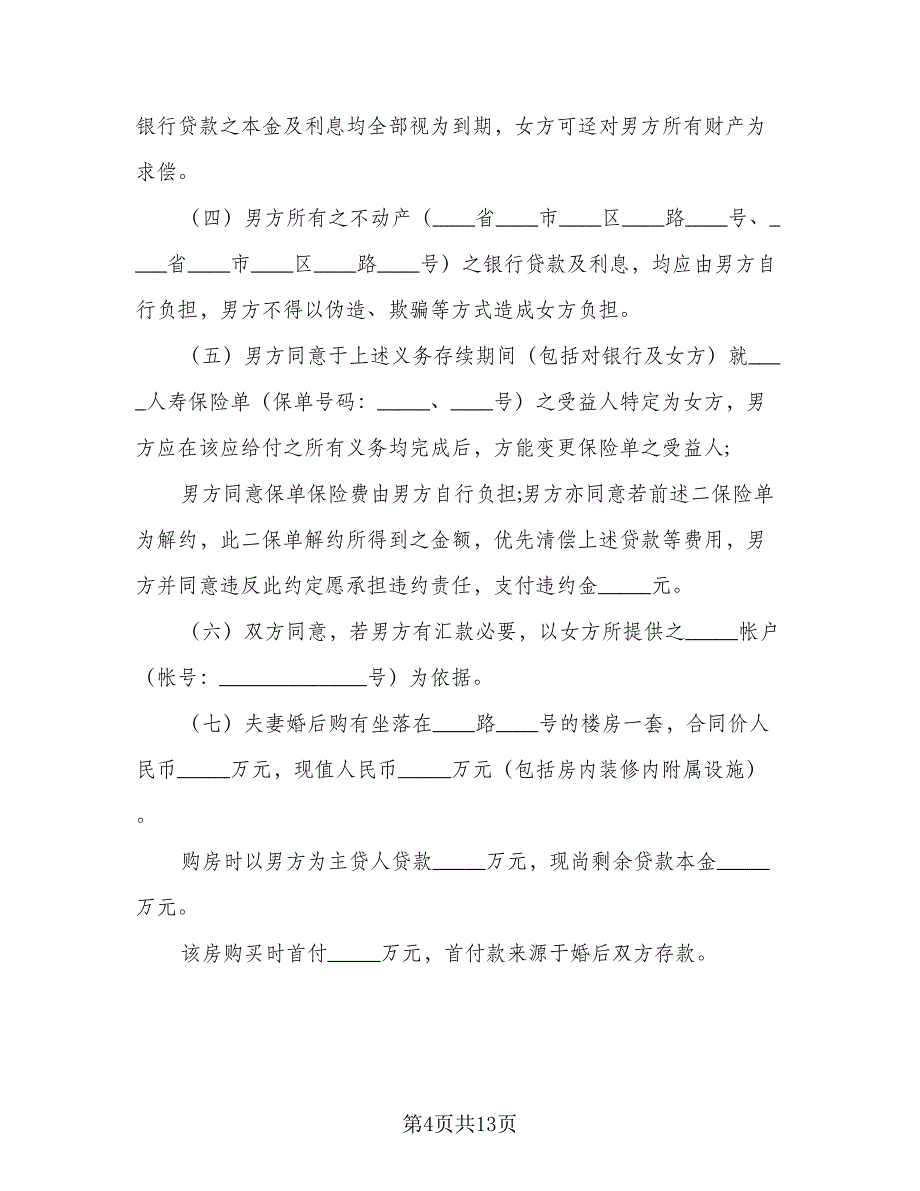 银行贷款之本金及利息均全部视为到期，女方可迳对男方所有财产为
求偿。
（四）男方所有之不动产（____省____市____区____路____号、_
___省____市____区____路____号）之银行贷款及利息，均应由男方自
行负担，男方不得以伪造、欺骗等方式造成女方负担。
（五）男方同意于上述义务存续期间（包括对银行及女方）就___
_人寿保险单（保单号码：_____、____号）之受益人特定为女方，男
方应在该应给付之所有义务均完成后，方能变更保险单之受益人;
男方同意保单保险费由男方自行负担;男方亦同意若前述二保险单
为解约，此二保单解约所得到之金额，优先清偿上述贷款等费用，男
方并同意违反此约定愿承担违约责任，支付违约金_____元。
（六）双方同意，若男方有汇款必要，以女方所提供之_____帐户
（帐号：______________号）为依据。
（七）夫妻婚后购有坐落在____路____号的楼房一套，合同价人
民币_____万元，现值人民币_____万元（包括房内装修内附属设施）
。
购房时以男方为主贷人贷款_____万元，现尚剩余贷款本金_____
万元。
该房购买时首付_____万元，首付款来源于婚后双方存款。
第4页共13页